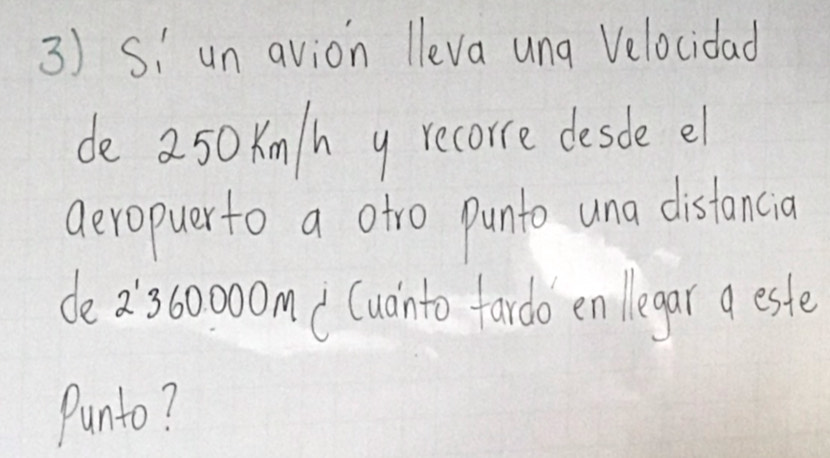 3) Sí un avión lleva una Velocidad
de 250 Km/h y recorre desde el
aeropuerto a otro punto una distancia
de 2'360.000m ¿Cuánto tardó en llegar a este
Punto?